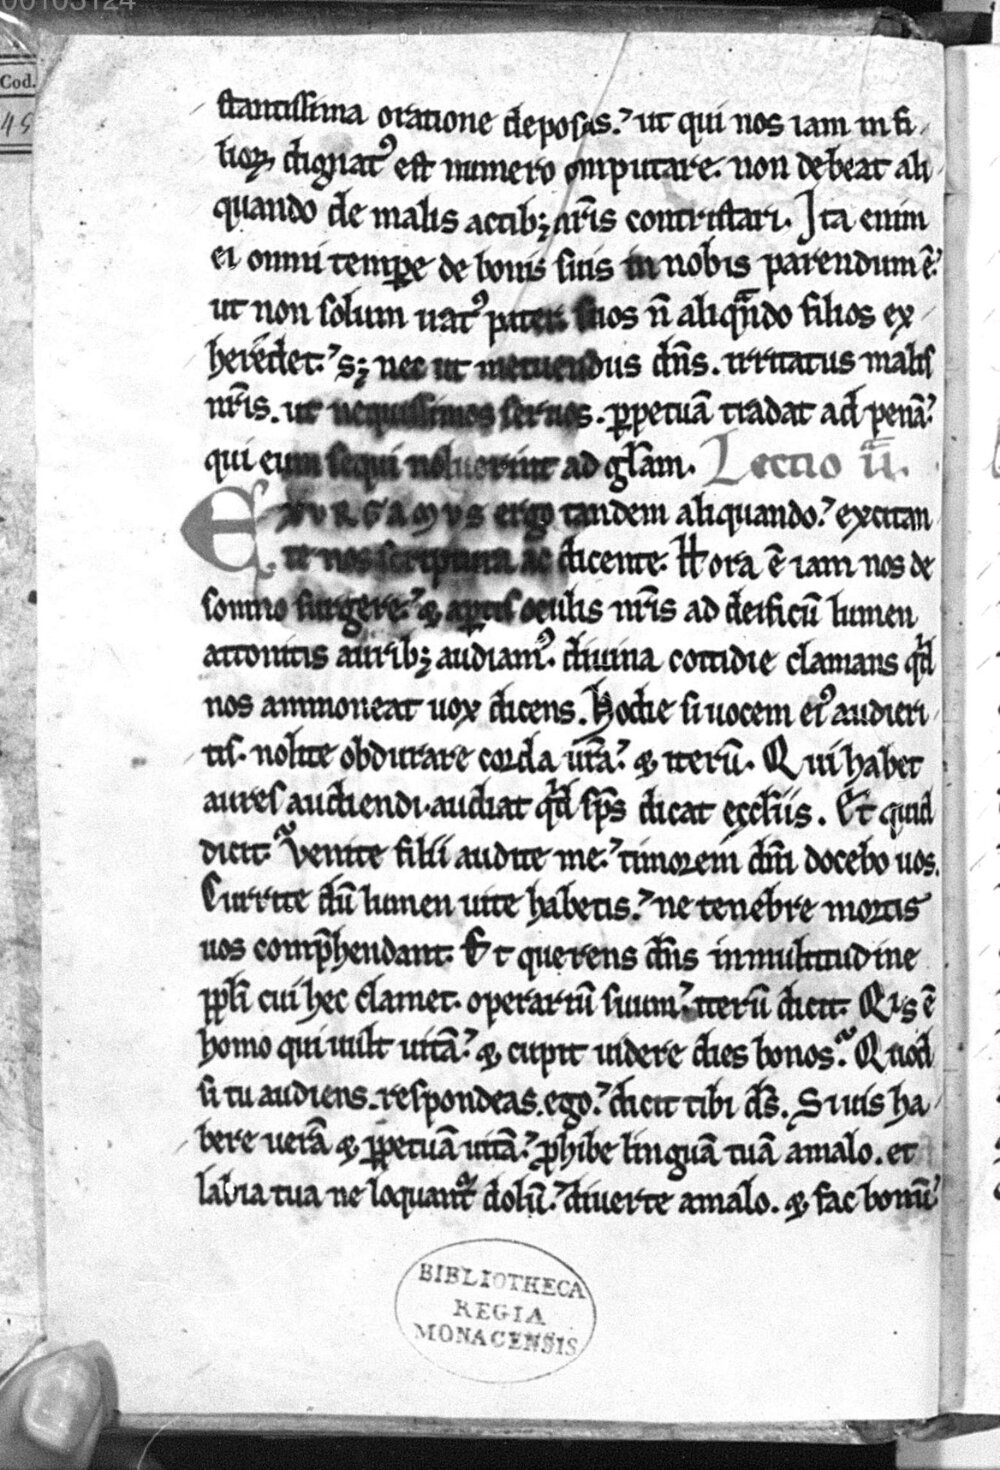 00103124
Cod.
45
stantissima oratione deposcas. ut qui nos iam in fi
lioꝝ dignatꝰ est numero computare. non debeat ali
quando de malis actibꝫ nr̄is contristari. Ita enim
ei omni temꝑe de bonis suis in nobis parendum ē.
ut non solum iratꝰ pater suos n̄ aliqn̄do filios ex
heredet. sꝫ nec ut metuendus dn̄s. irritatus malis
nr̄is. ut nequissimos seruos. ꝑpetuā tradat ad penā.
qui eum sequi noluerint ad glām. Lectio ii.
EXURGAMUS ergo tandem aliquando. excitan
te nos scriptura ac dicente. Hora ē iam nos de
somno surgere. & aꝑtis oculis nr̄is ad deificū lumen
attonitis auribꝫ audiamꝰ. diuina cottidie clamans qd̄
nos ammoneat uox dicens. Hodie si uocem eiꝰ audieri
tis. nolite obdurare corda ur̄a. & iterū. Qui habet
aures audiendi. audiat qd̄ sp̄s dicat eccl̄iis. Et quid
dicit. Venite filii audite me. timorem dn̄i docebo uos.
Currite dū lumen uite habetis. ne tenebre mortis
uos comp̄hendant. Et querens dn̄s in multitudine
ppl̄i cui hec clamet. operariū suum. iterū dicit. Qis ē
homo qui uult uitā. & cupit uidere dies bonos. Quod
si tu audiens. respondeas. ego. dicit tibi ds̄. Si uis ha
bere uerā & ꝑpetuā uitā. ꝓhibe linguā tuā a malo. et
labia tua ne loquant̄ dolū. diuerte a malo. & fac bonū
BIBLIOTHECA
REGIA
MONACENSIS